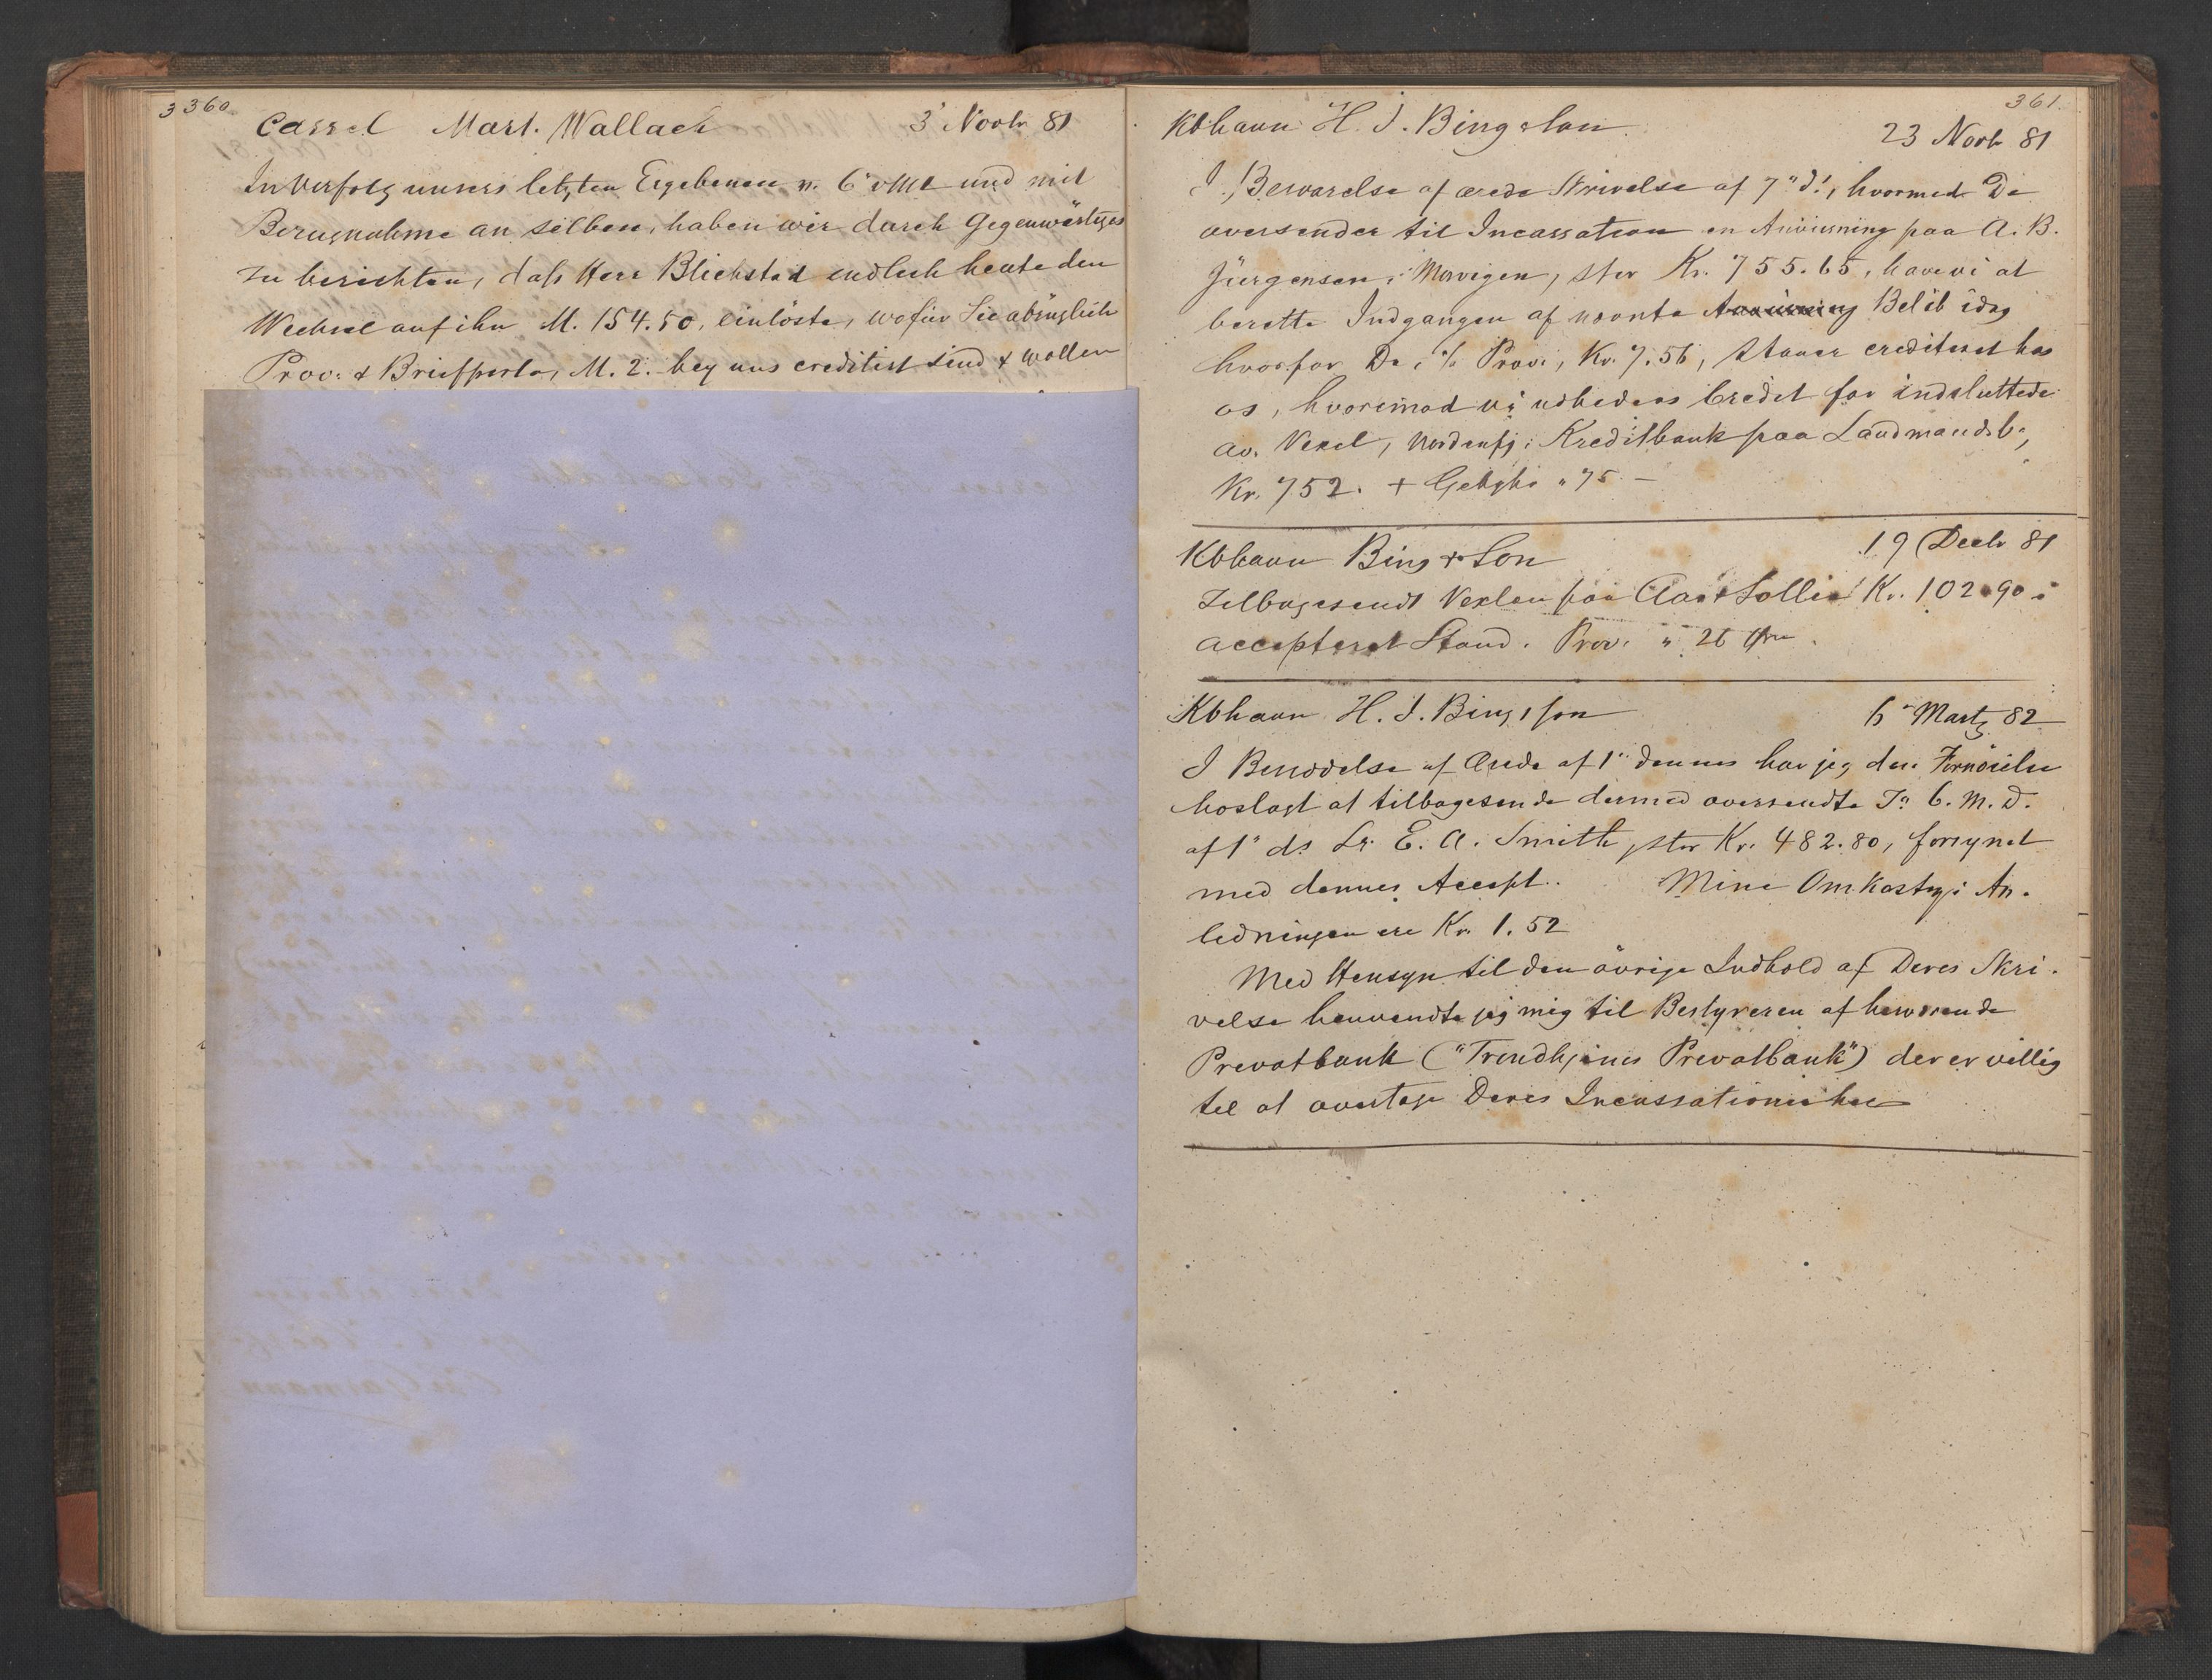 360
Cassel Mart. Wallach 3' Novbr 81
In Verfolg unsers letzten Ergebenen v. 6' und mit
Bezugnahme an selben, haben wir durch Gegenwärtiges
zu berichten, daß Herr Blichstad endlich heute den
Wechsel auf ihn M. 154.50, einlöste, wofür Sie abzüglich
Prov. & Briefporto, M. 2. bey uns creditirt sind & wollen
361.
Kbhavn H. J. Bing & Son 23 Novbr 81
I Besvarelse af ærede Skrivelse af 7" ds, hvormed De
oversender til Incassation en Anviisning paa A. B.
Jürgensen i Norvegen, stor Kr. 755.65, have vi at
berette Indgangen af nævnte Beløb idag
hvorfor De, % Prov., Kr. 7.56, staaer crediteret hos
os, hvorimod vi udbeder os Credit for indsluttede
av. Vexel, Nordenfj. Kreditbank paa Landmandsb.,
Kr. 752. + " 75 –
Kbhavn Bing & Son 19 Decbr 81
Tilbagesendt Vexlen paa Aas & Sollie Kr. 102.90 i
accepteret Stand. Prov. " 26 Øre.
Kbhavn H. J. Bing & Son 6" Martz 82
I Besvarelse af Ærede af 1" dennes har jeg den Fornöielse
hoslagt at tilbagesende dermed oversendte Tr. 6. M. D.
af 1" ds Lr. E. A. Smith, stor Kr. 482.80, forsynet
med dennes Accept. Mine Omkostng i An-
ledningen ere Kr. 1.52
Med Hensyn til den övrige Indhold af Deres Skri-
velse henvendte jeg mig til Bestyreren af herværende
Privatbank ("Trondhjems Privatbank") der er villig
til at overtage Deres Incassationer her